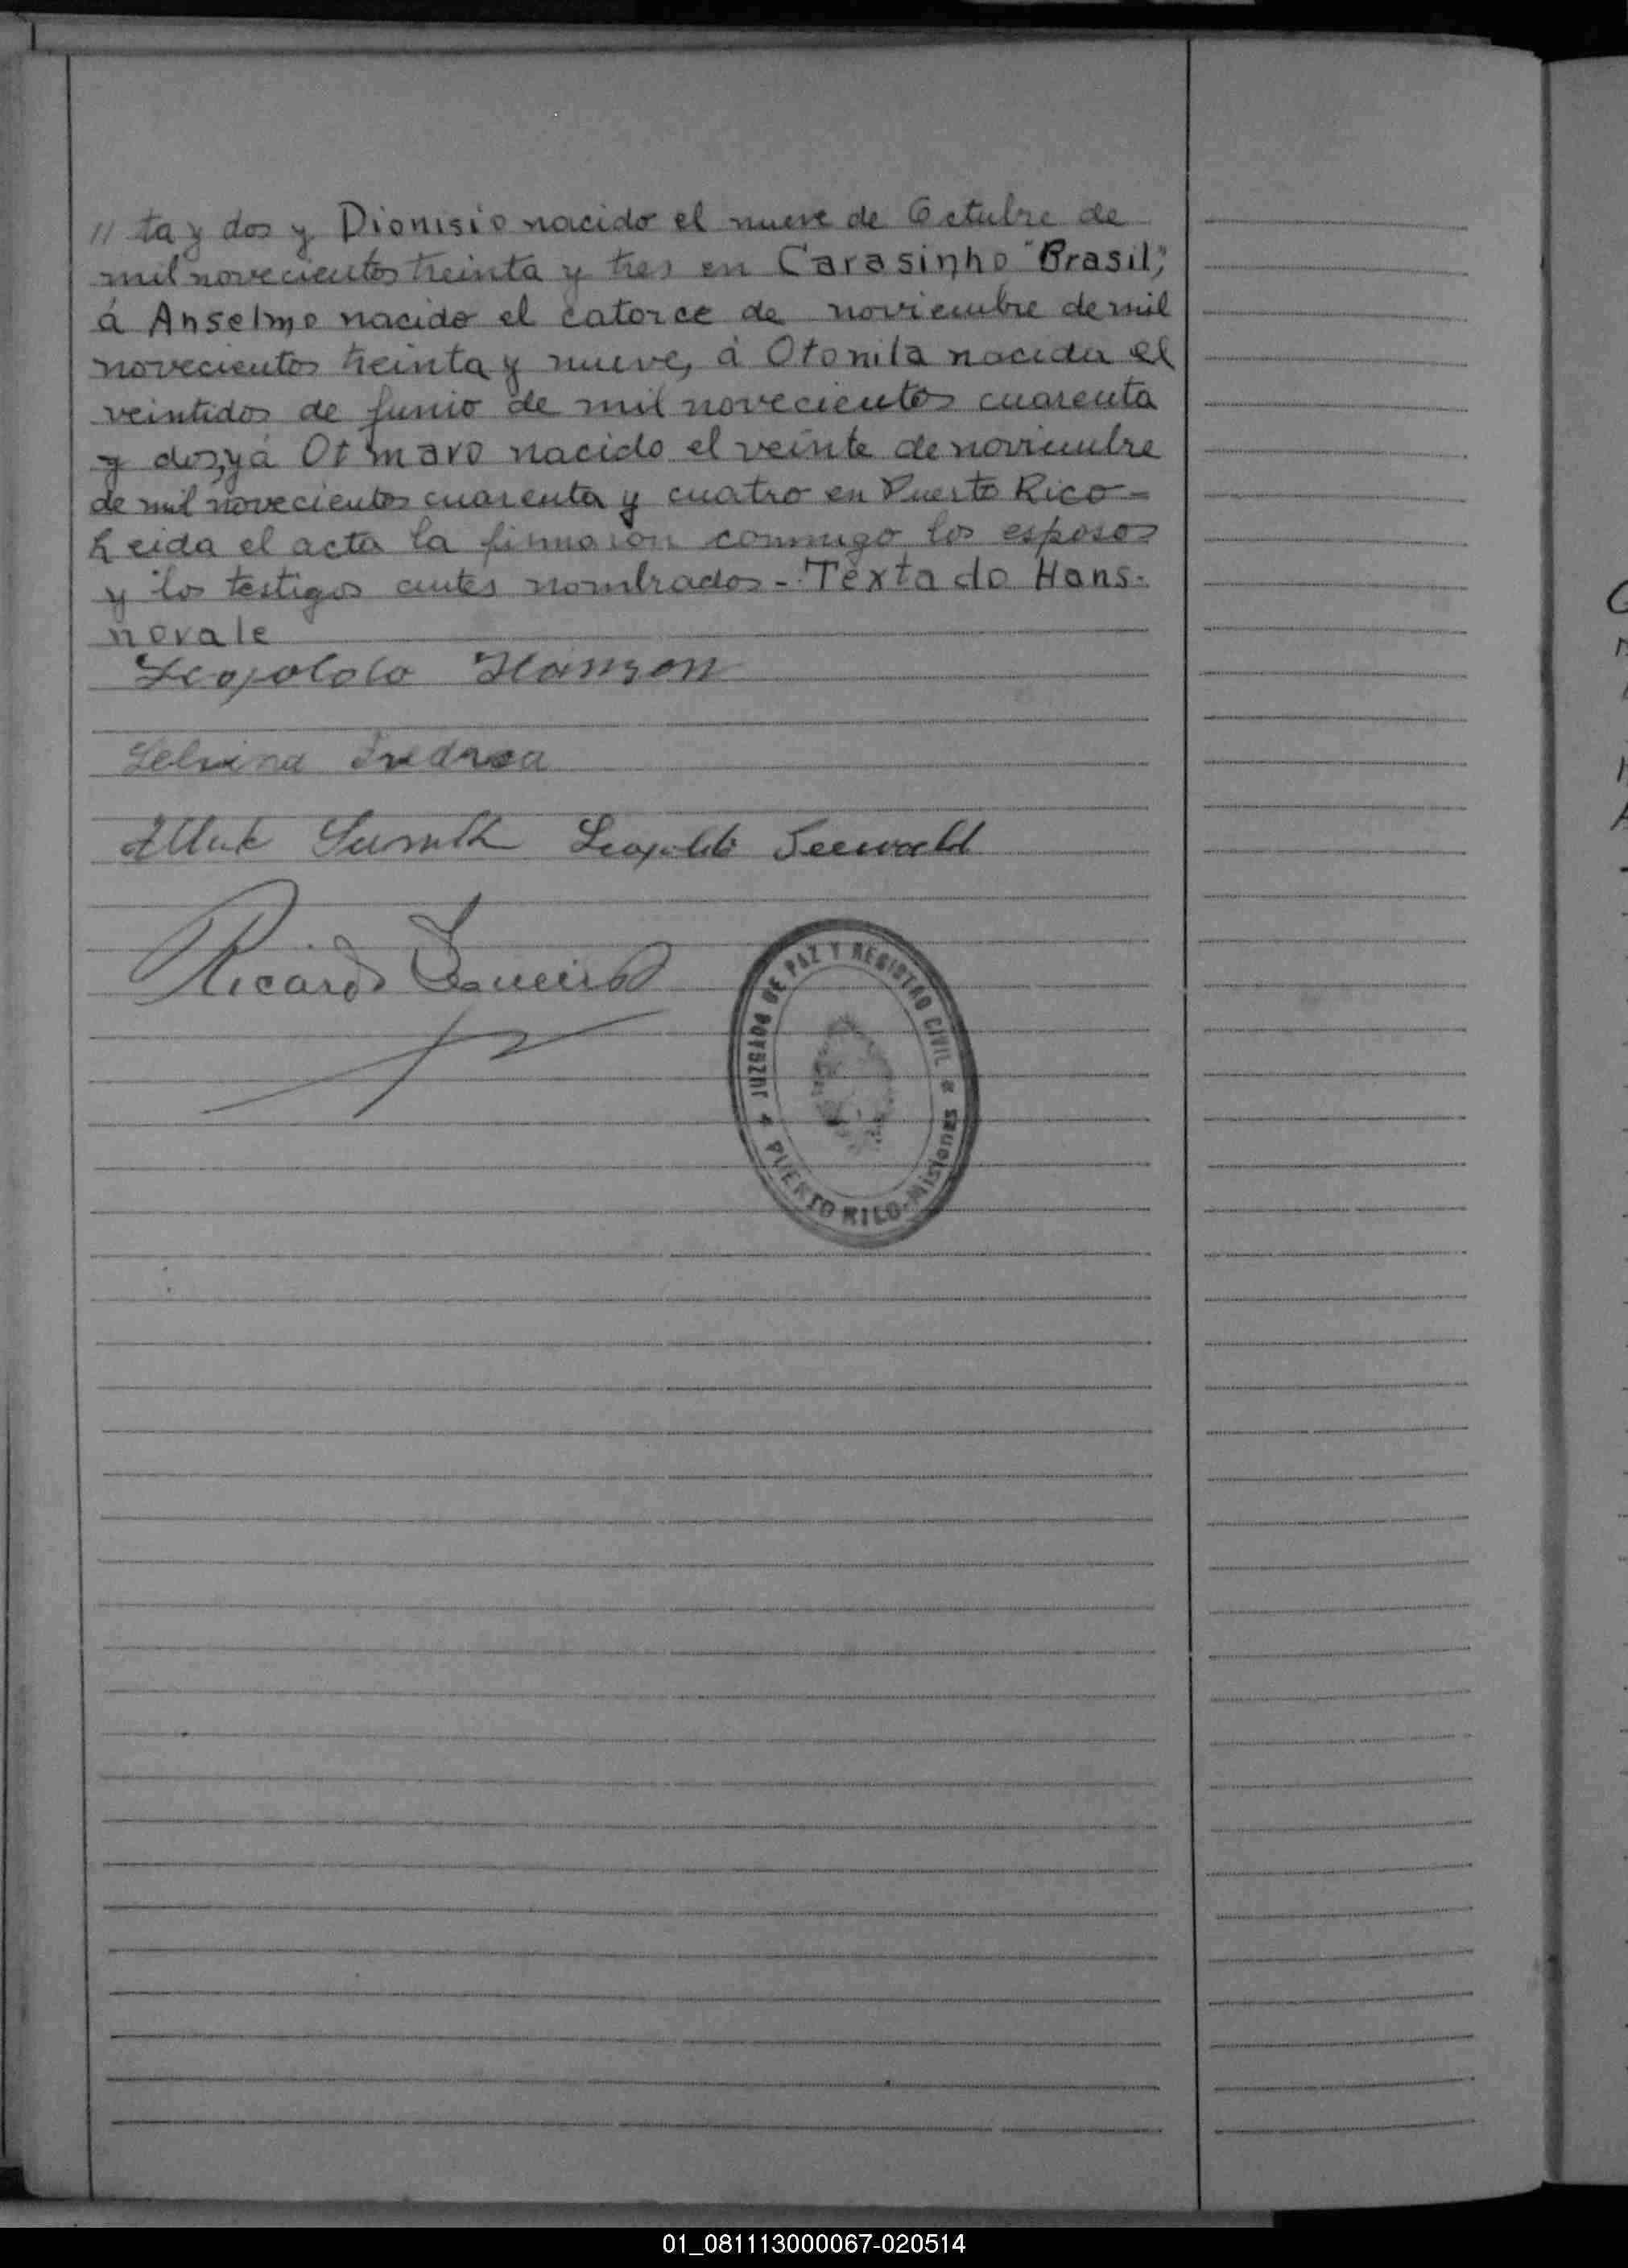 // ta y dos y Dionisio nacido el nueve de Octubre de
mil novecientos treinta y tres en Carasinho "Brasil",
á Anselmo nacido el catorce de noviembre de mil
novecientos treinta y nueve, á Otonila nacida el
veintidos de junio de mil novecientos cuarenta
y dos, y á Otmaro nacido el veinte de noviembre
de mil novecientos cuarenta y cuatro en Puerto Rico -
Leida el acta la firmaron conmigo los esposos
y los testigos antes nombrados - Textado Hans.
no vale
Leopoldo Hanson
Leopoldo Seewald
Ricardo
JUZGADO DE PAZ Y REGISTRO CIVIL
PUERTO RICO - Misiones
01_081113000067-020514